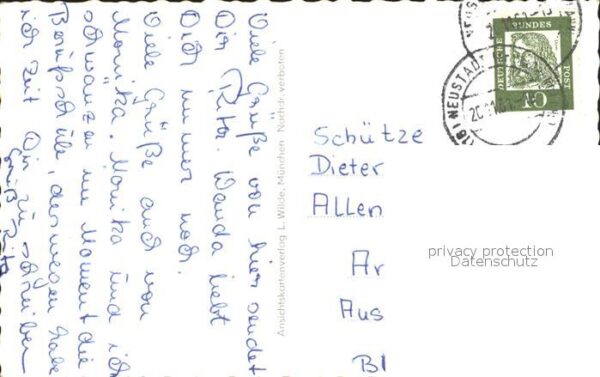 Viele Grüße von hier sendet
Dir Rita. Wanda liebt
Dich immer noch.
Viele Grüße auch von
Monika. Monika und ich
schwänzen im Moment die
Berufsschule, deswegen habe
ich Zeit Dir zu schreiben
Gruß Rita
Ansichtskartenverlag L. Wilde, München Nachdr. verboten
Schütze
Dieter
Allen
Ar
Aus
Bl
privacy protection
Datenschutz
DEUTSCHE
BUNDES
POST
10
NEUSTADT